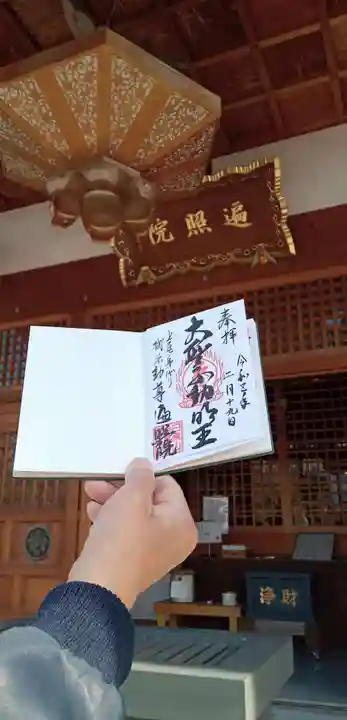 遍照院
奉拝
令和三年
二月十九日
大聖不動明王
厄除不動尊
遍照院
浄財